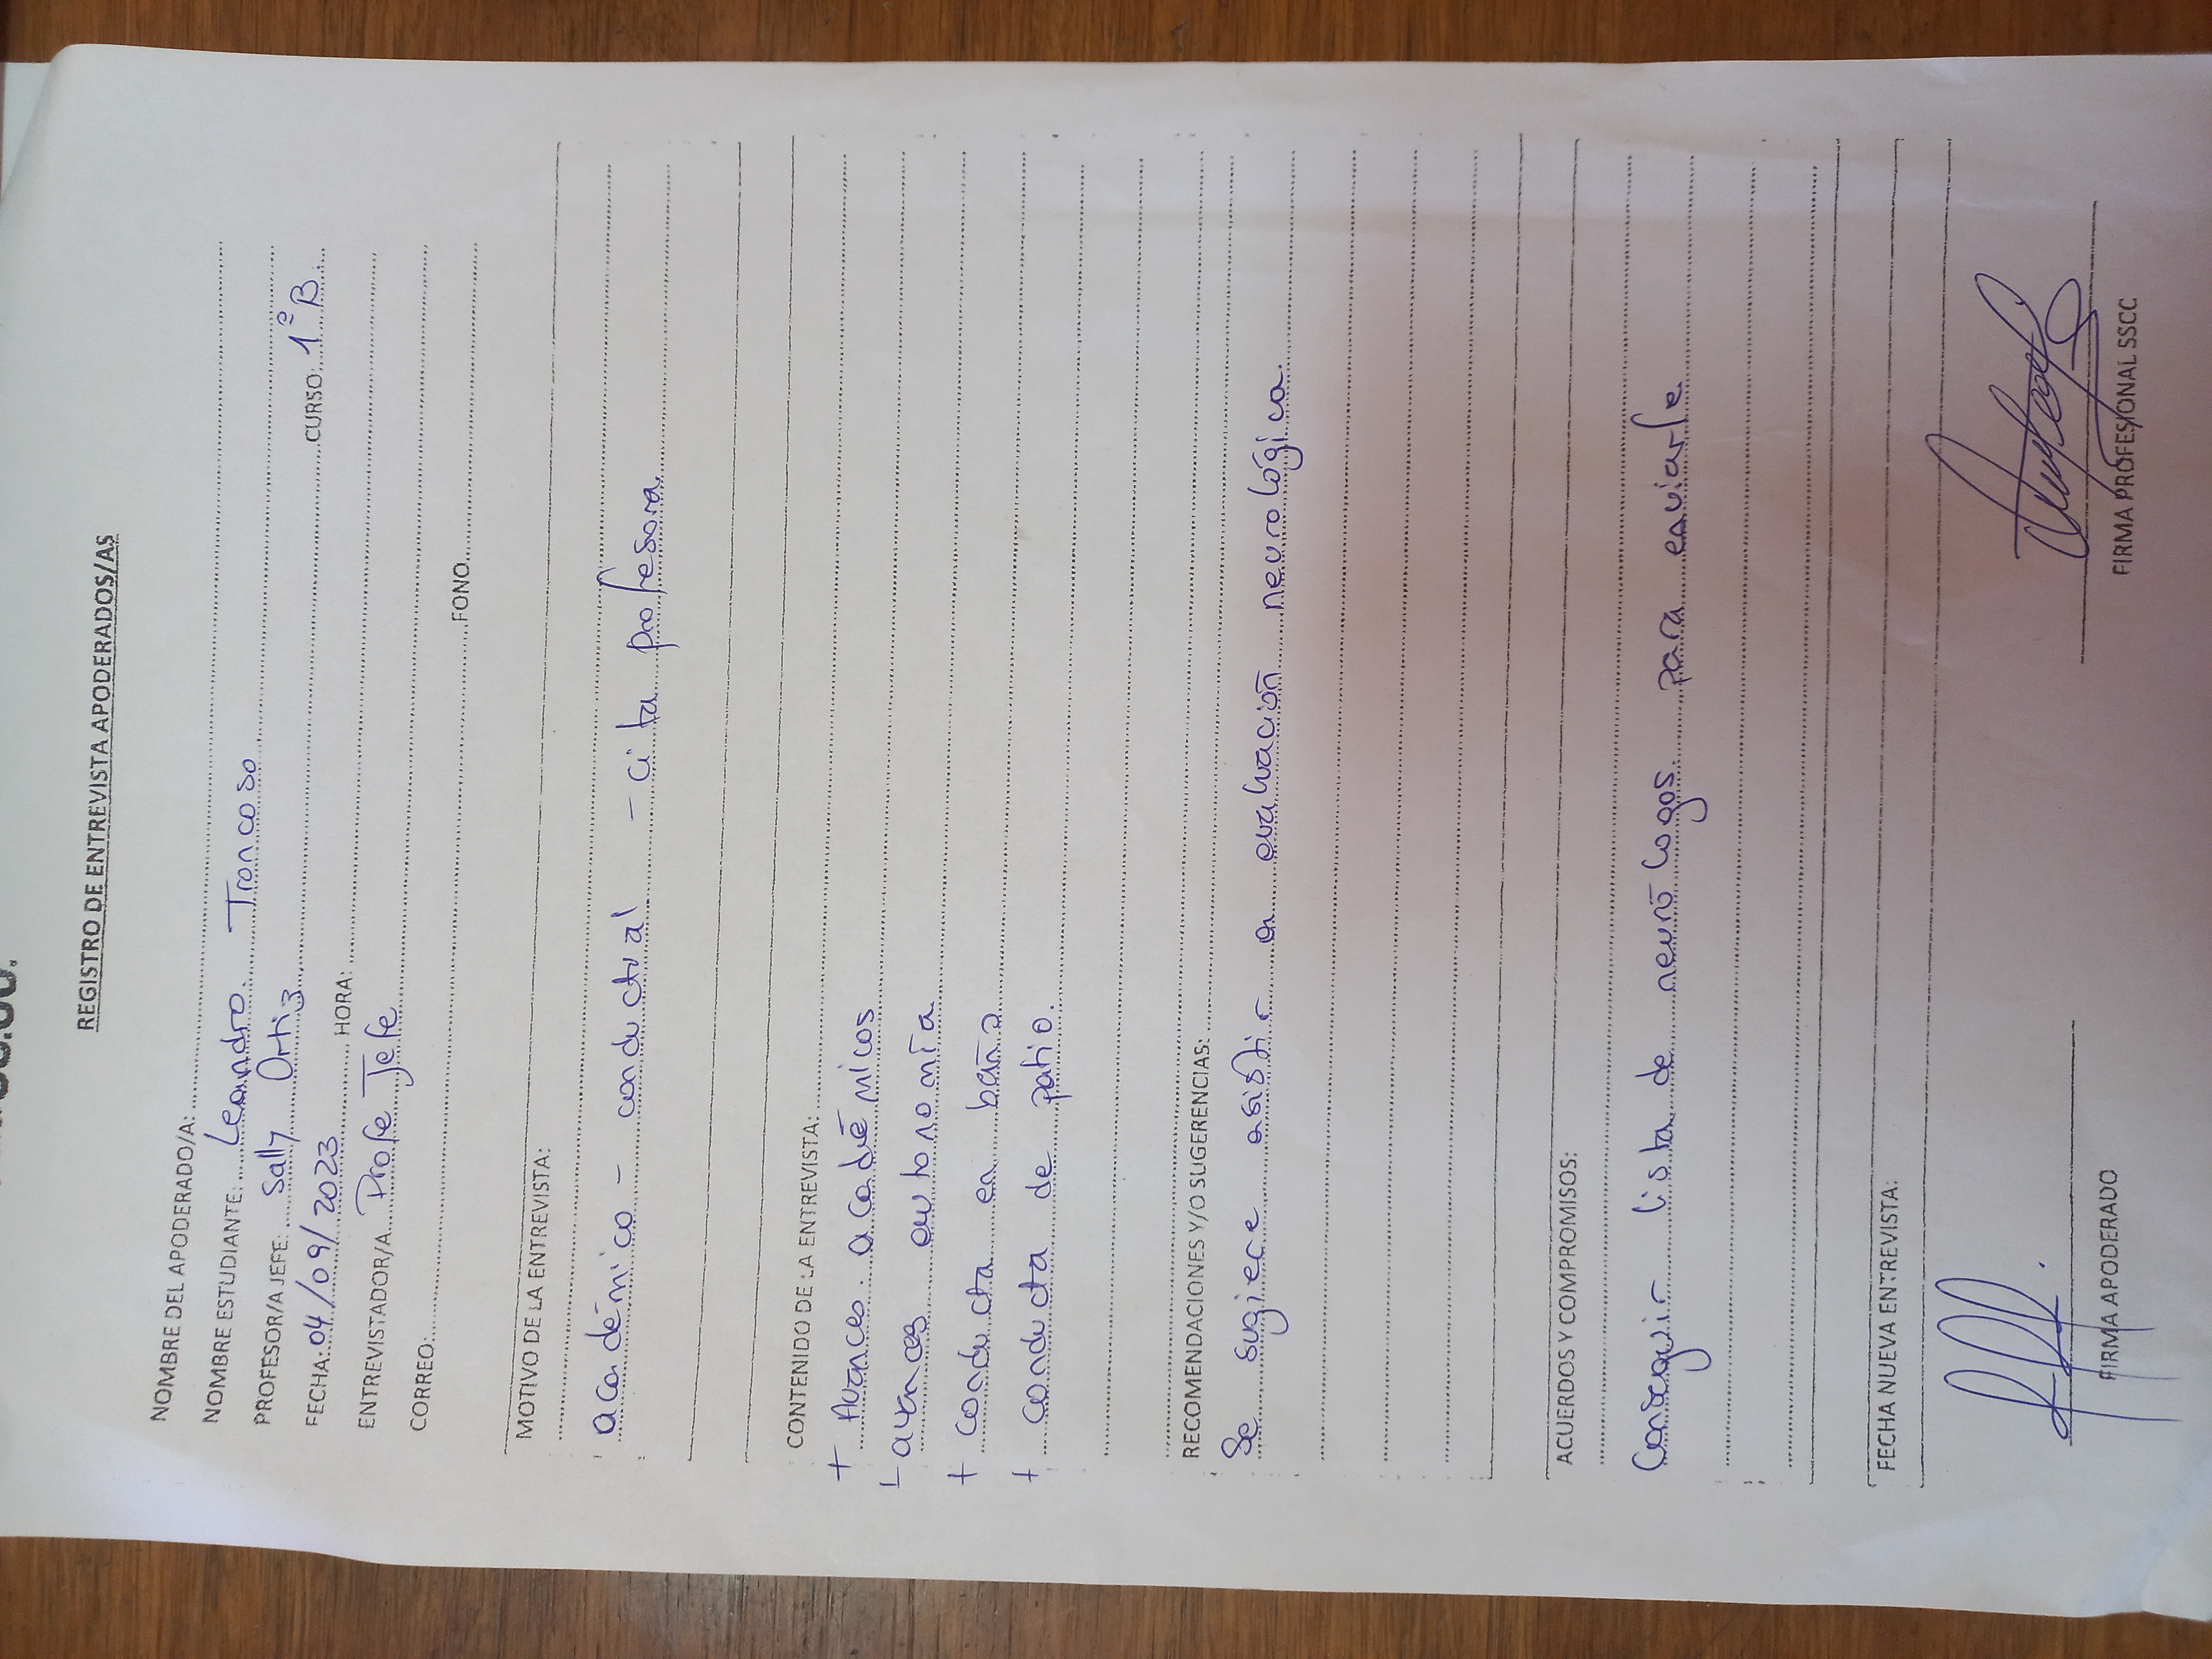 REGISTRO DE ENTREVISTA APODERADOS/AS
NOMBRE DEL APODERADO/A:
NOMBRE ESTUDIANTE: Leandro Troncoso
PROFESOR/A JEFE: Sally Ortiz
FECHA: 04/09/2023 HORA: CURSO: 1º B.
ENTREVISTADOR/A Profe Jefe
CORREO: FONO
MOTIVO DE LA ENTREVISTA:
académico - conductual - cita profesora.
CONTENIDO DE LA ENTREVISTA:
+ Avances académicos
+ avances autonomía
+ conducta en baño
+ conducta de patio.
RECOMENDACIONES Y/O SUGERENCIAS:
Se sugiere asistir a evaluación neurológica.
ACUERDOS Y COMPROMISOS:
Conseguir lista de neurólogos para enviarle
FECHA NUEVA ENTREVISTA:
FIRMA APODERADO FIRMA PROFESIONAL SSCC